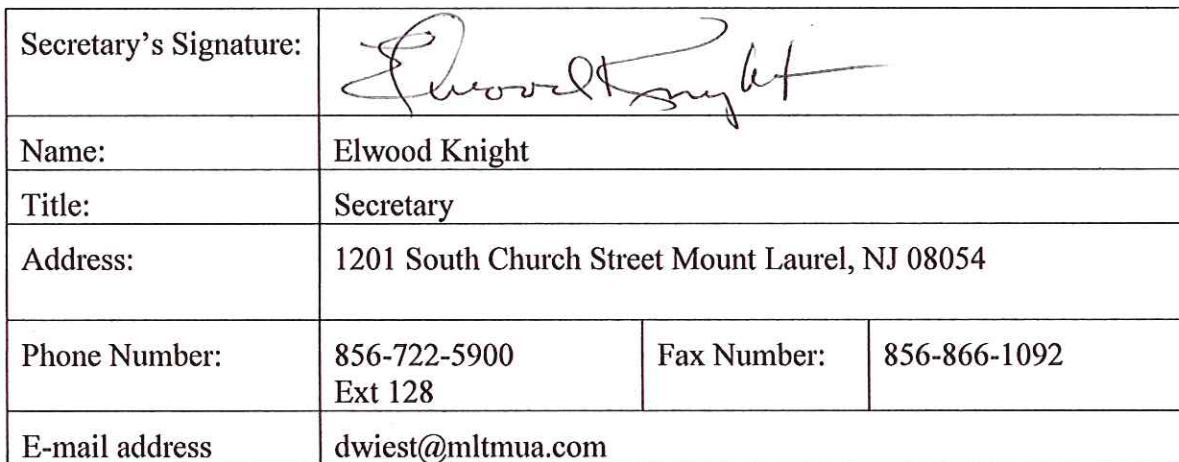 Secretary's Signature: Elwood Knight
Name: Elwood Knight
Title: Secretary
Address: 1201 South Church Street Mount Laurel, NJ 08054
Phone Number: 856-722-5900 Fax Number: 856-866-1092
Ext 128
E-mail address dwiest@mltmua.com